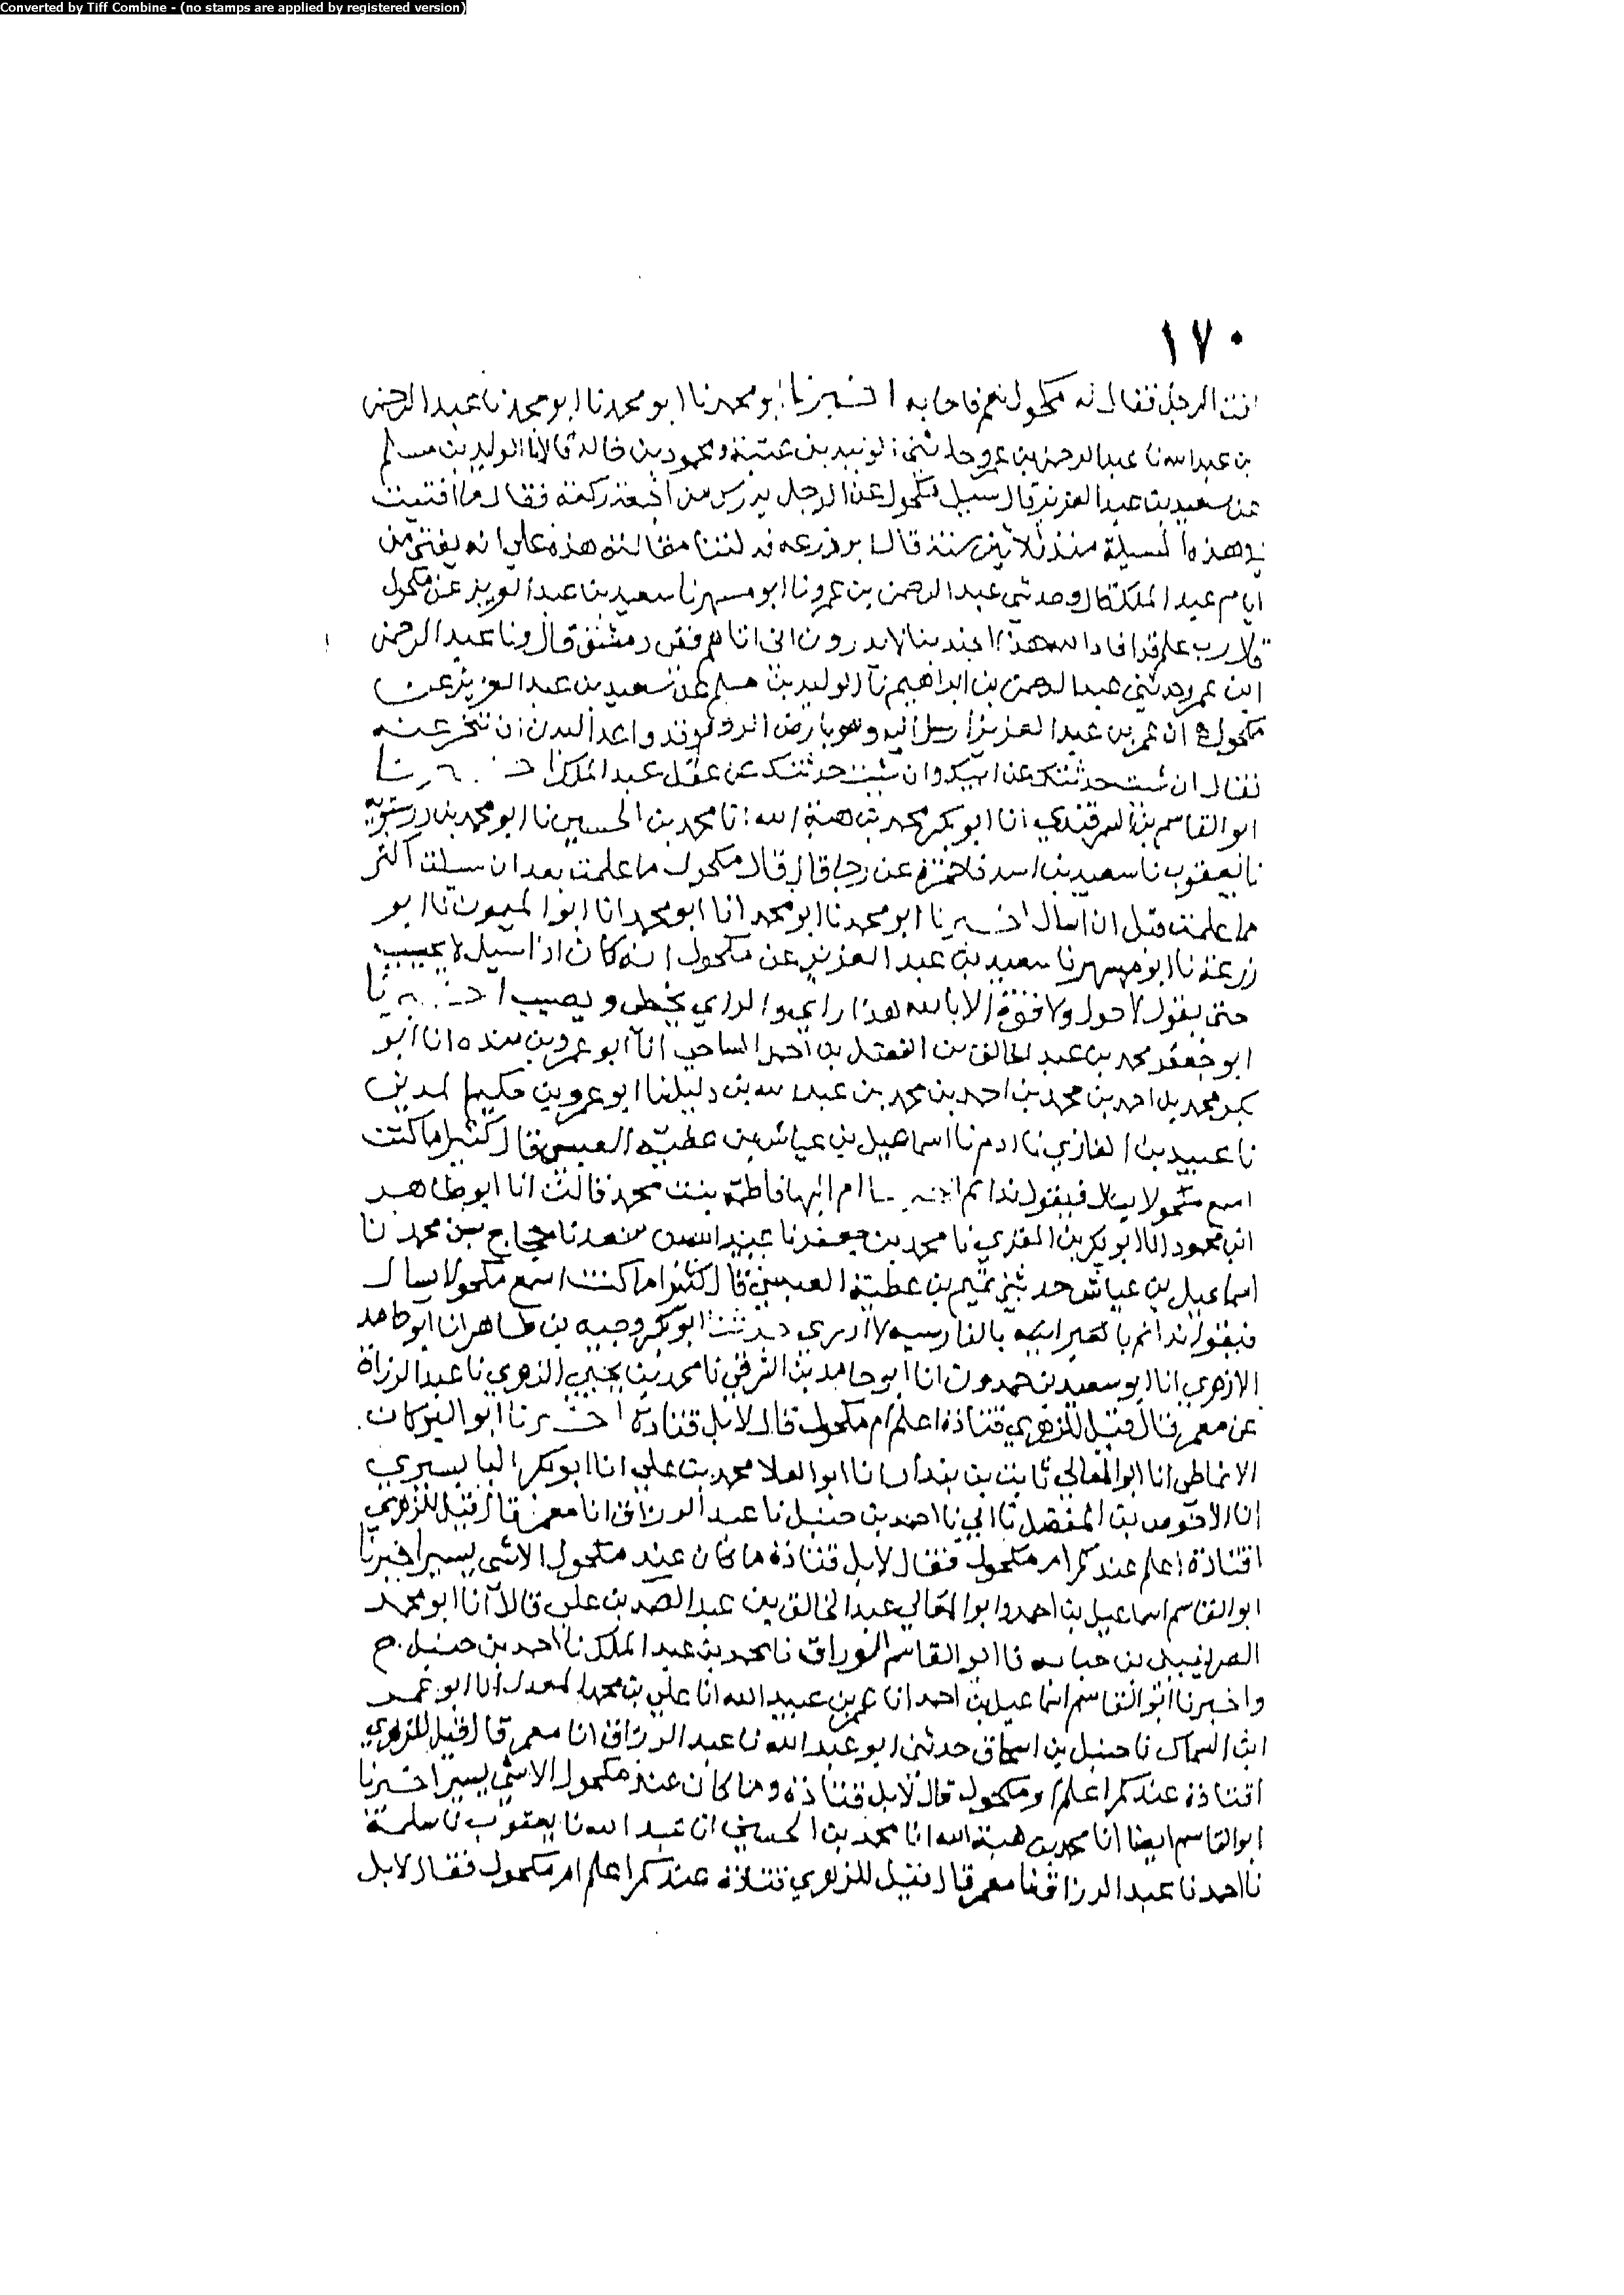 Converted by Tiff Combine - (no stamps are applied by registered version)
١٧٠
انت الرجل فقال له مكحول نعم فاجابه اخبرنا ابو محمد نا ابو محمد نا ابو محمد نا عبد الرحمن
بن عبد الله نا عبد الرحمن بن عمرو حدثني الوليد بن عتبة ومحمود بن خالد قالا نا الوليد بن مسلم
عن سعيد بن عبد العزيز قال سيل مكحول عن الرجل يدرك من الجمعة ركعة فقال ما افتيت
في هذه المسيلة منذ ثلاثين سنة قال ابو زرعه فدلتنا مقالته هذه على انه يفتي من
ايام عبد الملك قال وحدثني عبد الرحمن بن عمرو نا ابو مسهر نا سعيد بن عبد العزيز عن مكحول
قال رب علم قد افاد الله هذا الجند بنا لا يدرون اني انا لم فقى دمشق قال ونا عبد الرحمن
ابن عمرو حدثني عبد الرحمن بن ابراهيم نا الوليد بن مسلم عن سعيد بن عبد العزيز عن
مكحول ان عمر بن عبد العزيز ارسل اليه وهو بارض الروم وقد واعد البدن ان تنحر عنه
فقال ان شئت حدثتك عن ابيك وان شئت حدثتك عن عقل عبد الملك اخبرنا
ابو القاسم بن السمرقندي انا ابو بكر محمد بن هبة الله انا محمد بن الحسين نا ابو محمد بن درستويه
نا يعقوب نا سعيد بن اسد نا ضمرة عن رجا قال قال مكحول ما علمت بعد ان سيلت اكثر
مما علمت قبل ان اسال اخبرنا ابو محمد نا ابو محمد انا ابو محمد انا ابو الميمون نا ابو
زرعة نا ابو مسهر نا سعيد بن عبد العزيز عن مكحول انه كان اذا سيل لا يجيب
حتى يقول لا حول ولا قوة الا بالله هذا راي والراي يخطى ويصيب اخبرنا
ابو جعفر محمد بن عبد الخالق بن الفضل بن احمد الصاحب انا ابو عمرو بن منده انا ابو
بكر محمد بن احمد بن محمد بن احمد بن محمد بن عبد الله بن دليل نا ابو عمرو بن حكيم المديني
نا عبيد بن الغازي نا ادم نا اسماعيل بن عياش بن عطية العبسي قال كثيرا ما كنت
اسمع مكحولا يسال فيقول ندانم اخبرتنا ام البها فاطمة بنت محمد قالت انا ابو طاهر
ابن محمود انا ابو بكر بن المقري نا محمد بن جعفر نا عبيد الله بن سعد نا حجاج بن محمد نا
اسماعيل بن عياش حدثني تميم بن عطية العبسي قال كثيرا ما كنت اسمع مكحولا يسال
فيقول ندانم بالفارسيه لا ادري حدثنا ابو بكر وجيه بن طاهر انا ابو حامد
الازهري انا ابو سعيد بن حمدون انا ابو حامد بن الشرقي نا محمد بن يحيى الذهلي نا عبد الرزاق
عن معمر قال قيل للزهري قتادة اعلم ام مكحول قال لا بل قتادة اخبرنا ابو البركات
الانماطي انا ابو المعالي ثابت بن بندار انا ابو العلا محمد بن علي انا ابو بكر البابسيري
انا الاحوص بن المفضل نا ابي نا احمد بن حنبل نا عبد الرزاق انا معمر قال قيل للزهري
اقتادة اعلم عندكم ام مكحول فقال لا بل قتادة ما كان عند مكحول الا شي يسير اخبرنا
ابو القاسم اسماعيل بن احمد وابو المعالي عبد الخالق بن عبد الصمد بن علي قالا انا ابو محمد
الصريفيني بن حبابه نا ابو القاسم الوراق نا محمد بن عبد الملك نا احمد بن حنبل ح
واخبرنا ابو القاسم اسماعيل بن احمد انا عمر بن عبيد الله انا علي بن محمد المعدل انا ابو عمر
ابن السماك نا حنبل بن اسحاق حدثني ابو عبد الله نا عبد الرزاق انا معمر قال قيل للزهري
اقتادة عندكم اعلم او مكحول قال لا بل قتادة وما كان عند مكحول الا شي يسير اخبرنا
ابو القاسم ايضا انا محمد بن هبة الله انا محمد بن الحسين انا عبد الله نا يعقوب نا سلمة
نا احمد نا عبد الرزاق نا معمر قال قيل للزهري قتادة عندكم اعلم ام مكحول فقال لا بل